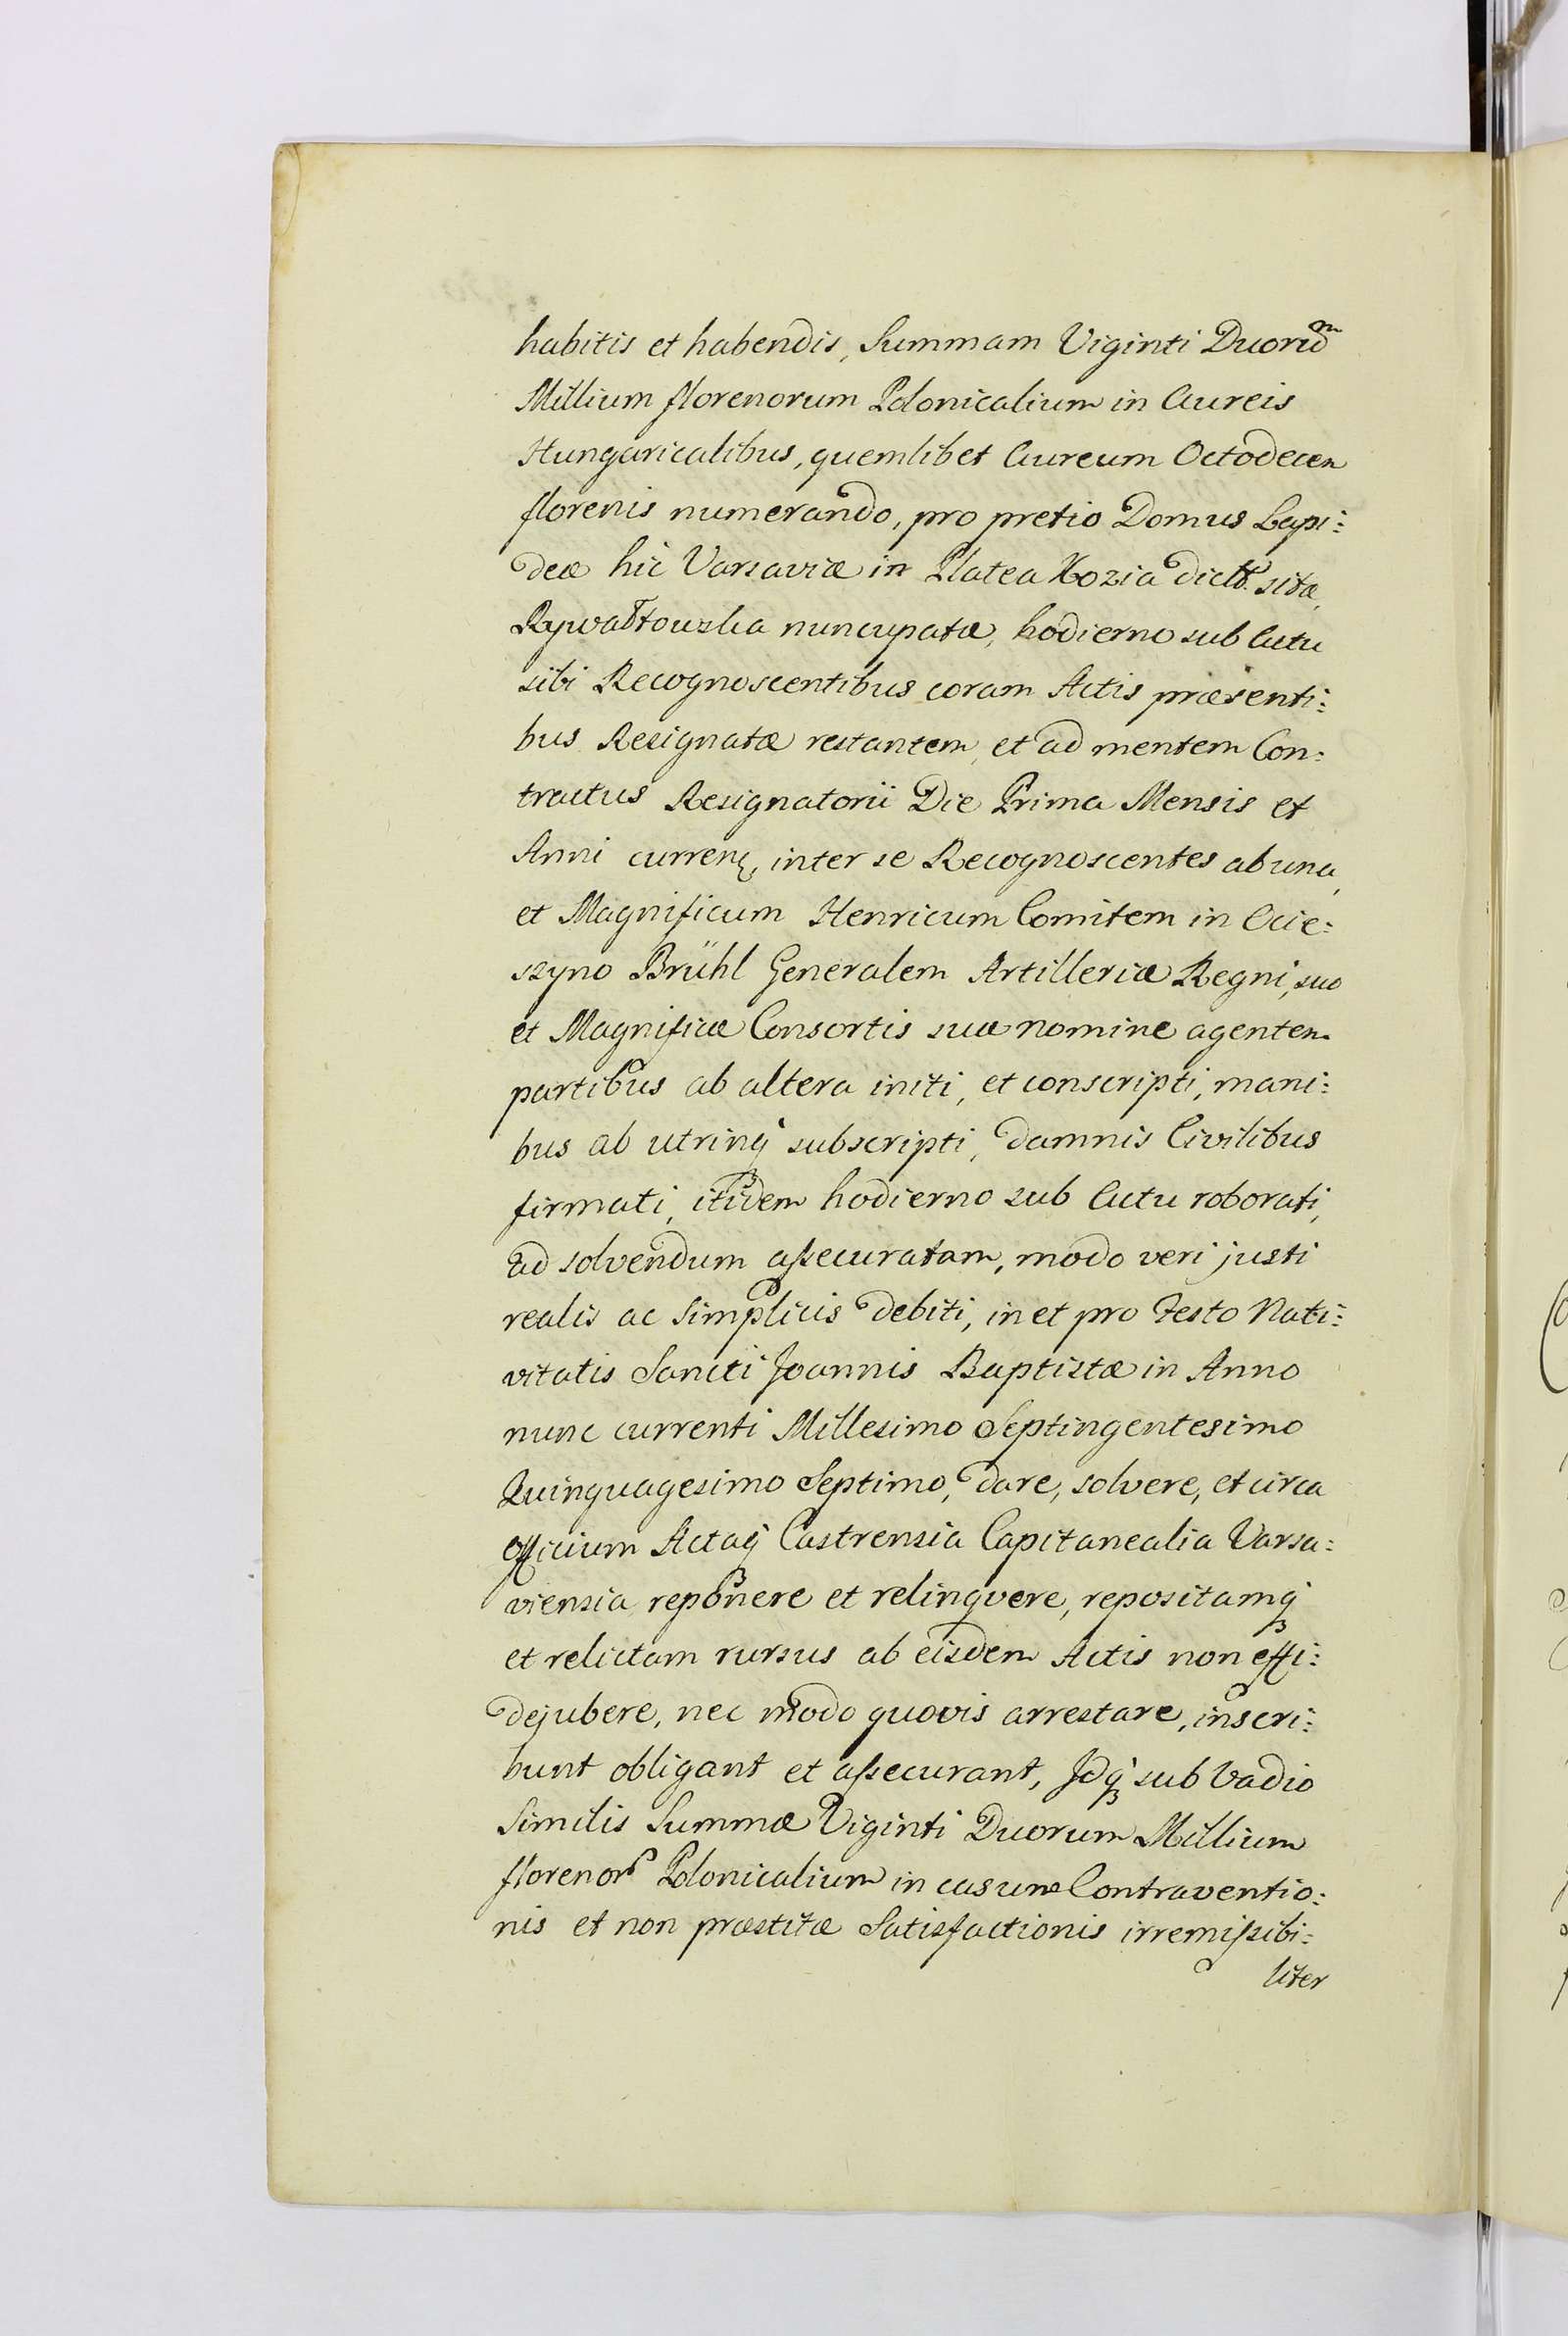 habitis et habendis, Summam Viginti Duorum
Millium florenorum Polonicalium in Aureis
Hungaricalibus, quemlibet Aureum Octodecem
florenis numerando, pro pretio Domus Lapi:
deæ hic Varsaviæ in Platea Kozia dict. sitæ,
Rywałtowska nuncupatæ, hodierno sub Actu
sibi Recognoscentibus coram Actis præsenti:
bus Resignatæ restantem, et ad mentem Con:
tractus Resignatorii Die Prima Mensis et
Anni curren, inter se Recognoscentes ab una,
et Magnificum Henricum Comitem in Ocie:
szyno Brühl Generalem Artilleriæ Regni, suo
et Magnificæ Consortis suæ nomine agentem
partibus ab altera initi, et conscripti, mani:
bus ab utrinq subscripti, damnis Civilibus
firmati, itidem hodierno sub Actu roborati,
ad solvendum assecuratam, modo veri justi
realis ac simplicis debiti, in et pro Festo Nati:
vitatis Sancti Joannis Baptistæ in Anno
nunc currenti Millesimo Septingentesimo
Quinquagesimo Septimo, dare, solvere, et circa
Officium Actaq Castrensia Capitanealia Varsa:
viensia reponere et relinqvere, repositamq
et relictam rursus ab eisdem Actis non effi:
dejubere, nec modo quovis arrestare, inscri:
bunt obligant et assecurant, Idq sub Vadio
Similis Summæ Viginti Duorum Millium
florenor Polonicalium in casum Contraventio:
nis et non præstitæ Satisfactionis irremissibi:
liter